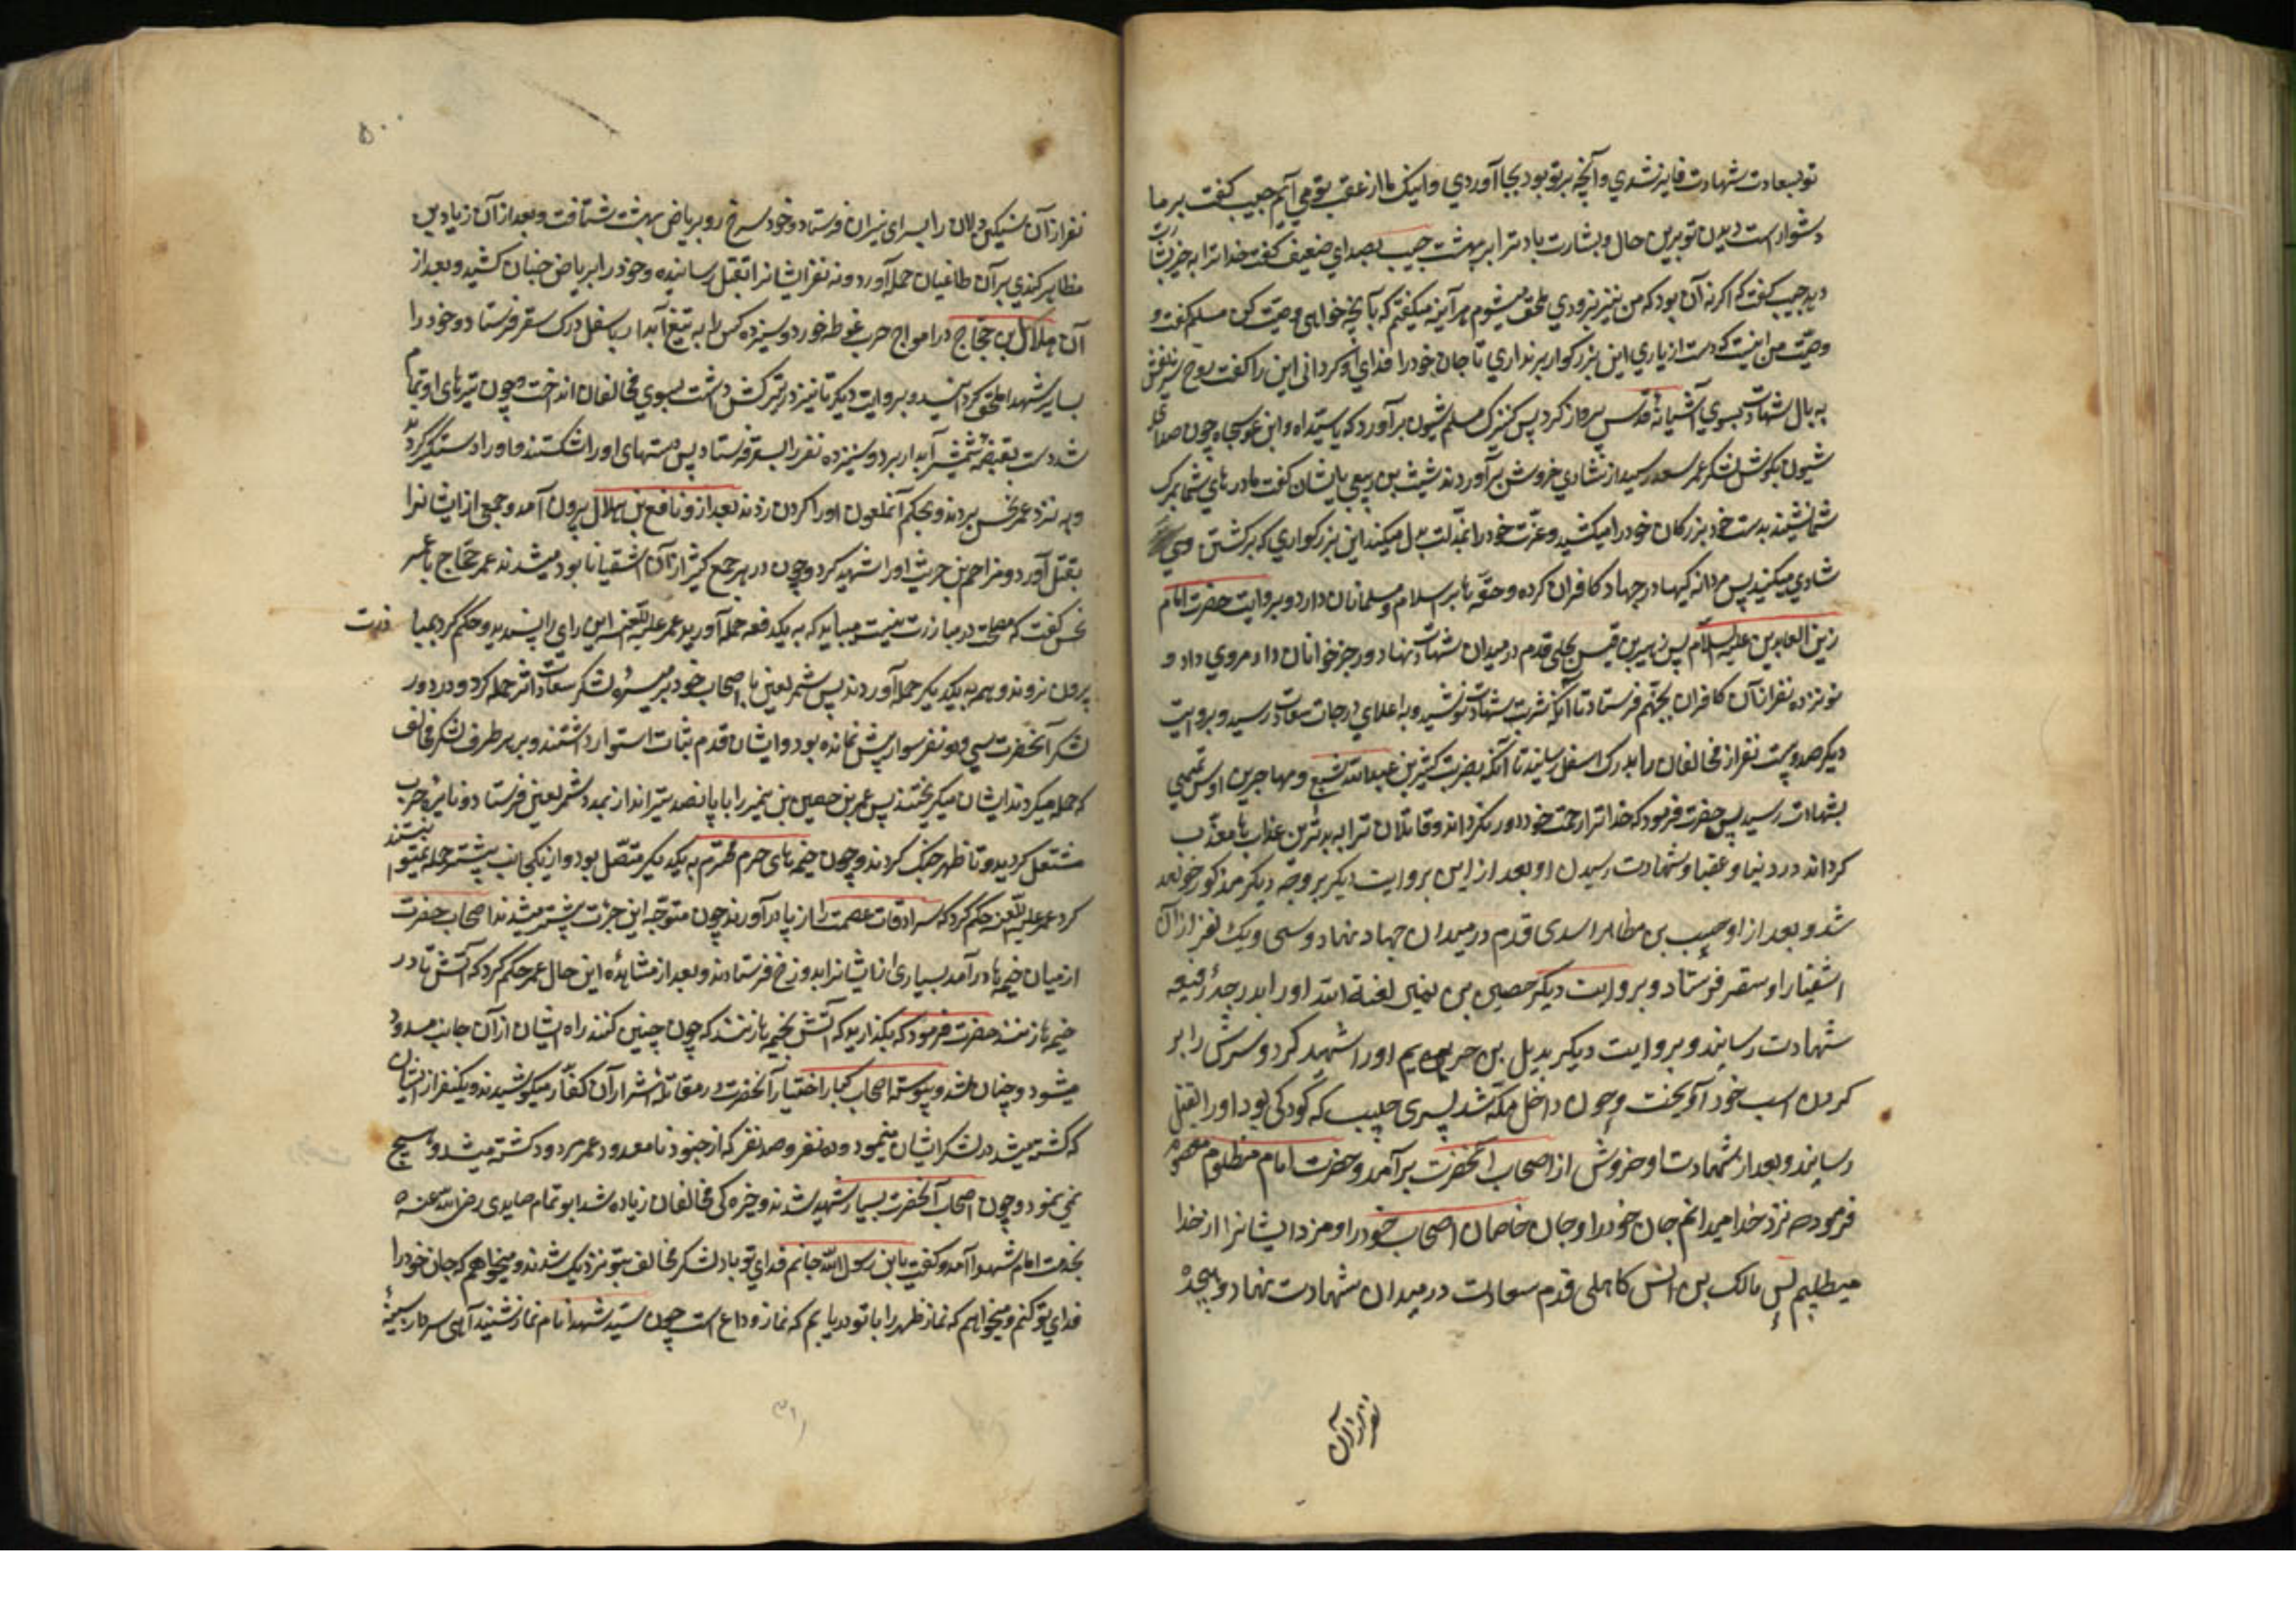 تو بسعادت شهادت فایز شدی و آنچه بر تو بود بجا آوردی و اینک ما از عقب تو می آیم حبیب کفت بر ما
دشوار است دیدن تو برین حال و بشارت باد ترا ببهشت حبیب بصدای ضعیف کفت خدا ترا به خیر بشارت
دهد حبیب کفت که اکر نه آن بود که من نیز بزودی ملحق میشوم هر آینه میکفتم که بآنچه خواهی وصیت کن مسلم کفت و
وصیت من اینست که دست از یاری این بزرکوار بر نداری تا جان خود را فدای او کردانی این را کفت روح شریفش
به بال شهادت بسوی آشیانهٔ قدس پرواز کرد پس کنیزک مسلم شیون برآورد که یا سیداه و ابن عوسجاه چون صدای
شیون بکوش لشکر عمر سعد رسید از شادی خروش برآوردند شیث بن ربعی بایشان کفت مادر های شما بمرک
شما نشیند بدست خود بزرکان خود را میکشید و عزت خود را بمذلت بدل میکنید این بزرکواری که بر کشتن وی
شادی میکنید پس مردانه کیها در جهاد کافران کرده و حقها بر اسلام و مسلمانان دارد و بروایت حضرت امام
زین العابدین علیه السلام پس زهیر بن قیس بجلی قدم در میدان شهادت نهاد و رجز خوانان داد مردی داد و
نوزده نفر از آن کافران بجهنم فرستاد تا آنکه شربت شهادت نوشید و به اعلای درجات سعادت رسید و بروایت
دیکر صد و بیست نفر از مخالفان را بدرک اسفل رسانید تا آنکه بضربت کثیر بن عبدالله شعبی و مهاجر بن اوس تمیمی
بشهادت رسید پس حضرت فرمود که خدا ترا از رحمت خود دور نکرداند و قاتلان ترا به بدترین عذابها معذب
کرداند در دنیا و عقبا و شهادت رسیدن او بعد از این بروایت دیکر بر وجه دیکر مذکور خواهد
شد و بعد از او حبیب بن مظاهر اسدی قدم در میدان جهاد نهاد و سی و یک نفر از آن
اشقیا را او سقر فرستاد و بروایت دیکر حصین بن نمیر لعنة الله او را بدرجهٔ رفیعه
شهادت رسانید و بروایت دیکر بدیل بن حریم او را شهید کرد و سرش را بر
کردن اسب خود آویخت و چون داخل مکه شد پسری حبیب که کودکی بود او را بقتل
رسانید و بعد از شهادت او خروش از اصحاب آنحضرت برآمد و حضرت امام مظلوم معصوم
فرمود نزد خدا میدانم جان خود را و جان خاصان اصحاب خود را و مزد ایشانرا از خدا
میطلبم پس مالک بن انس کاهلی قدم سعادت در میدان شهادت نهاد و هیجده
نفر از آن
۵۰۰
نفر از آن سنکین دلان را بسرای نیران فرستاد و خود سرخ رو بریاض بهشت شتافت و بعد از آن زیاد بن
مظاهر کندی بر آن طاغیان حمله آورد و نه نفر ایشانرا بقتل رسانیده و خود را بریاض جنان کشید و بعد از
آن هلال بن حجاج در امواج حرب غوطه خورد و سیزده کس را به تیغ آبدار باسفل درک سقر فرستاد و خود را
بسایر شهدا ملحق کردانید و بروایت دیکر تا تیر در ترکش داشت بسوی مخالفان انداخت و چون تیرهای او تمام
شد دست بقبضهٔ شمشیر آبدار برد و سیزده نفر را بسقر فرستاد پس دستهای او را شکستند و او را دستکیر کردند
و به نزد عمر نحس بردند و بحکم آنملعون او را کردن زدند بعد از و نافع بن هلال بیرون آمد و جمعی از ایشانرا
بقتل آورد و مزاحم بن حریث او را شهید کرد و چون در هر جمع کثیر از آن اشقیا نابود میشدند عمر حجاج با عمر
نحس کفت که مصلحت در مبارزت نیست میباید که به یکدفعه حمله آورید عمر علیه اللعنه این رای را پسندیده و حکم کرد بمبا
رزت
بیرون نروند و همه به یکدیکر حمله آوردند پس شمر لعین با اصحاب خود بر میسرهٔ لشکر سعادت اثر حمله کرد و در دور
لشکر آنحضرت سی و دو نفر سوار بیش نمانده بود و ایشان قدم ثبات استوار داشتند و بر هر طرف لشکر مخالف
که حمله میکردند ایشان میکریختند پس عمر بن حصین بن نمیر را با پانصد تیر انداز بمدد شمر لعین فرستاد و نایرهٔ حرب
مشتعل کردید و تا ظهر جنک کردند و چون خیمه های حرم محترم به یکدیکر متصل بود و از یکجانب بیشتر حمله نمیتوانستند
کرد عمر علیه اللعنه حکم کرد که سرادقات عصمت را از پا در آورند چون متوجه این جرئت بیشتر میشدند اصحاب حضرت
از میان خیمه ها در آمد بسیاری از ایشانرا بدوزخ فرستادند و بعد از مشاهدهٔ این حال عمر حکم کرد که آتش تا در
خیمه ها زنند حضرت فرمود که بکذارید که آتش بخیمه ها زنند که چون چنین کنند راه ایشان از آن جانب مسدود
میشود و چنان شد و پیوسته اصحاب کبار اختیار آنحضرت در مقاتلهٔ اشرار آن کفار میکوشیدند و یکنفر از ایشان
که کشته میشد در لشکر ایشان مینمود و ده نفر و صد نفر که از جنود نامعدود عمر مردود کشته میشد و هیچ
نمی نمود و چون اصحاب آنحضرت بسیار شهید شدند و خیره کی مخالفان زیاده شد ابو تمام صایدی رضی الله عنه
بخدمت امام شهدا آمد و کفت یا بن رسول الله جانم فدای تو باد لشکر مخالف بتو نزدیک شدند و میخواهم که جان خود را
فدای تو کنم و میخواهم که نماز ظهر را با تو دریابم که نماز وداع است چون سید شهدا نام نماز شنید آهی سرد از سینهٔ